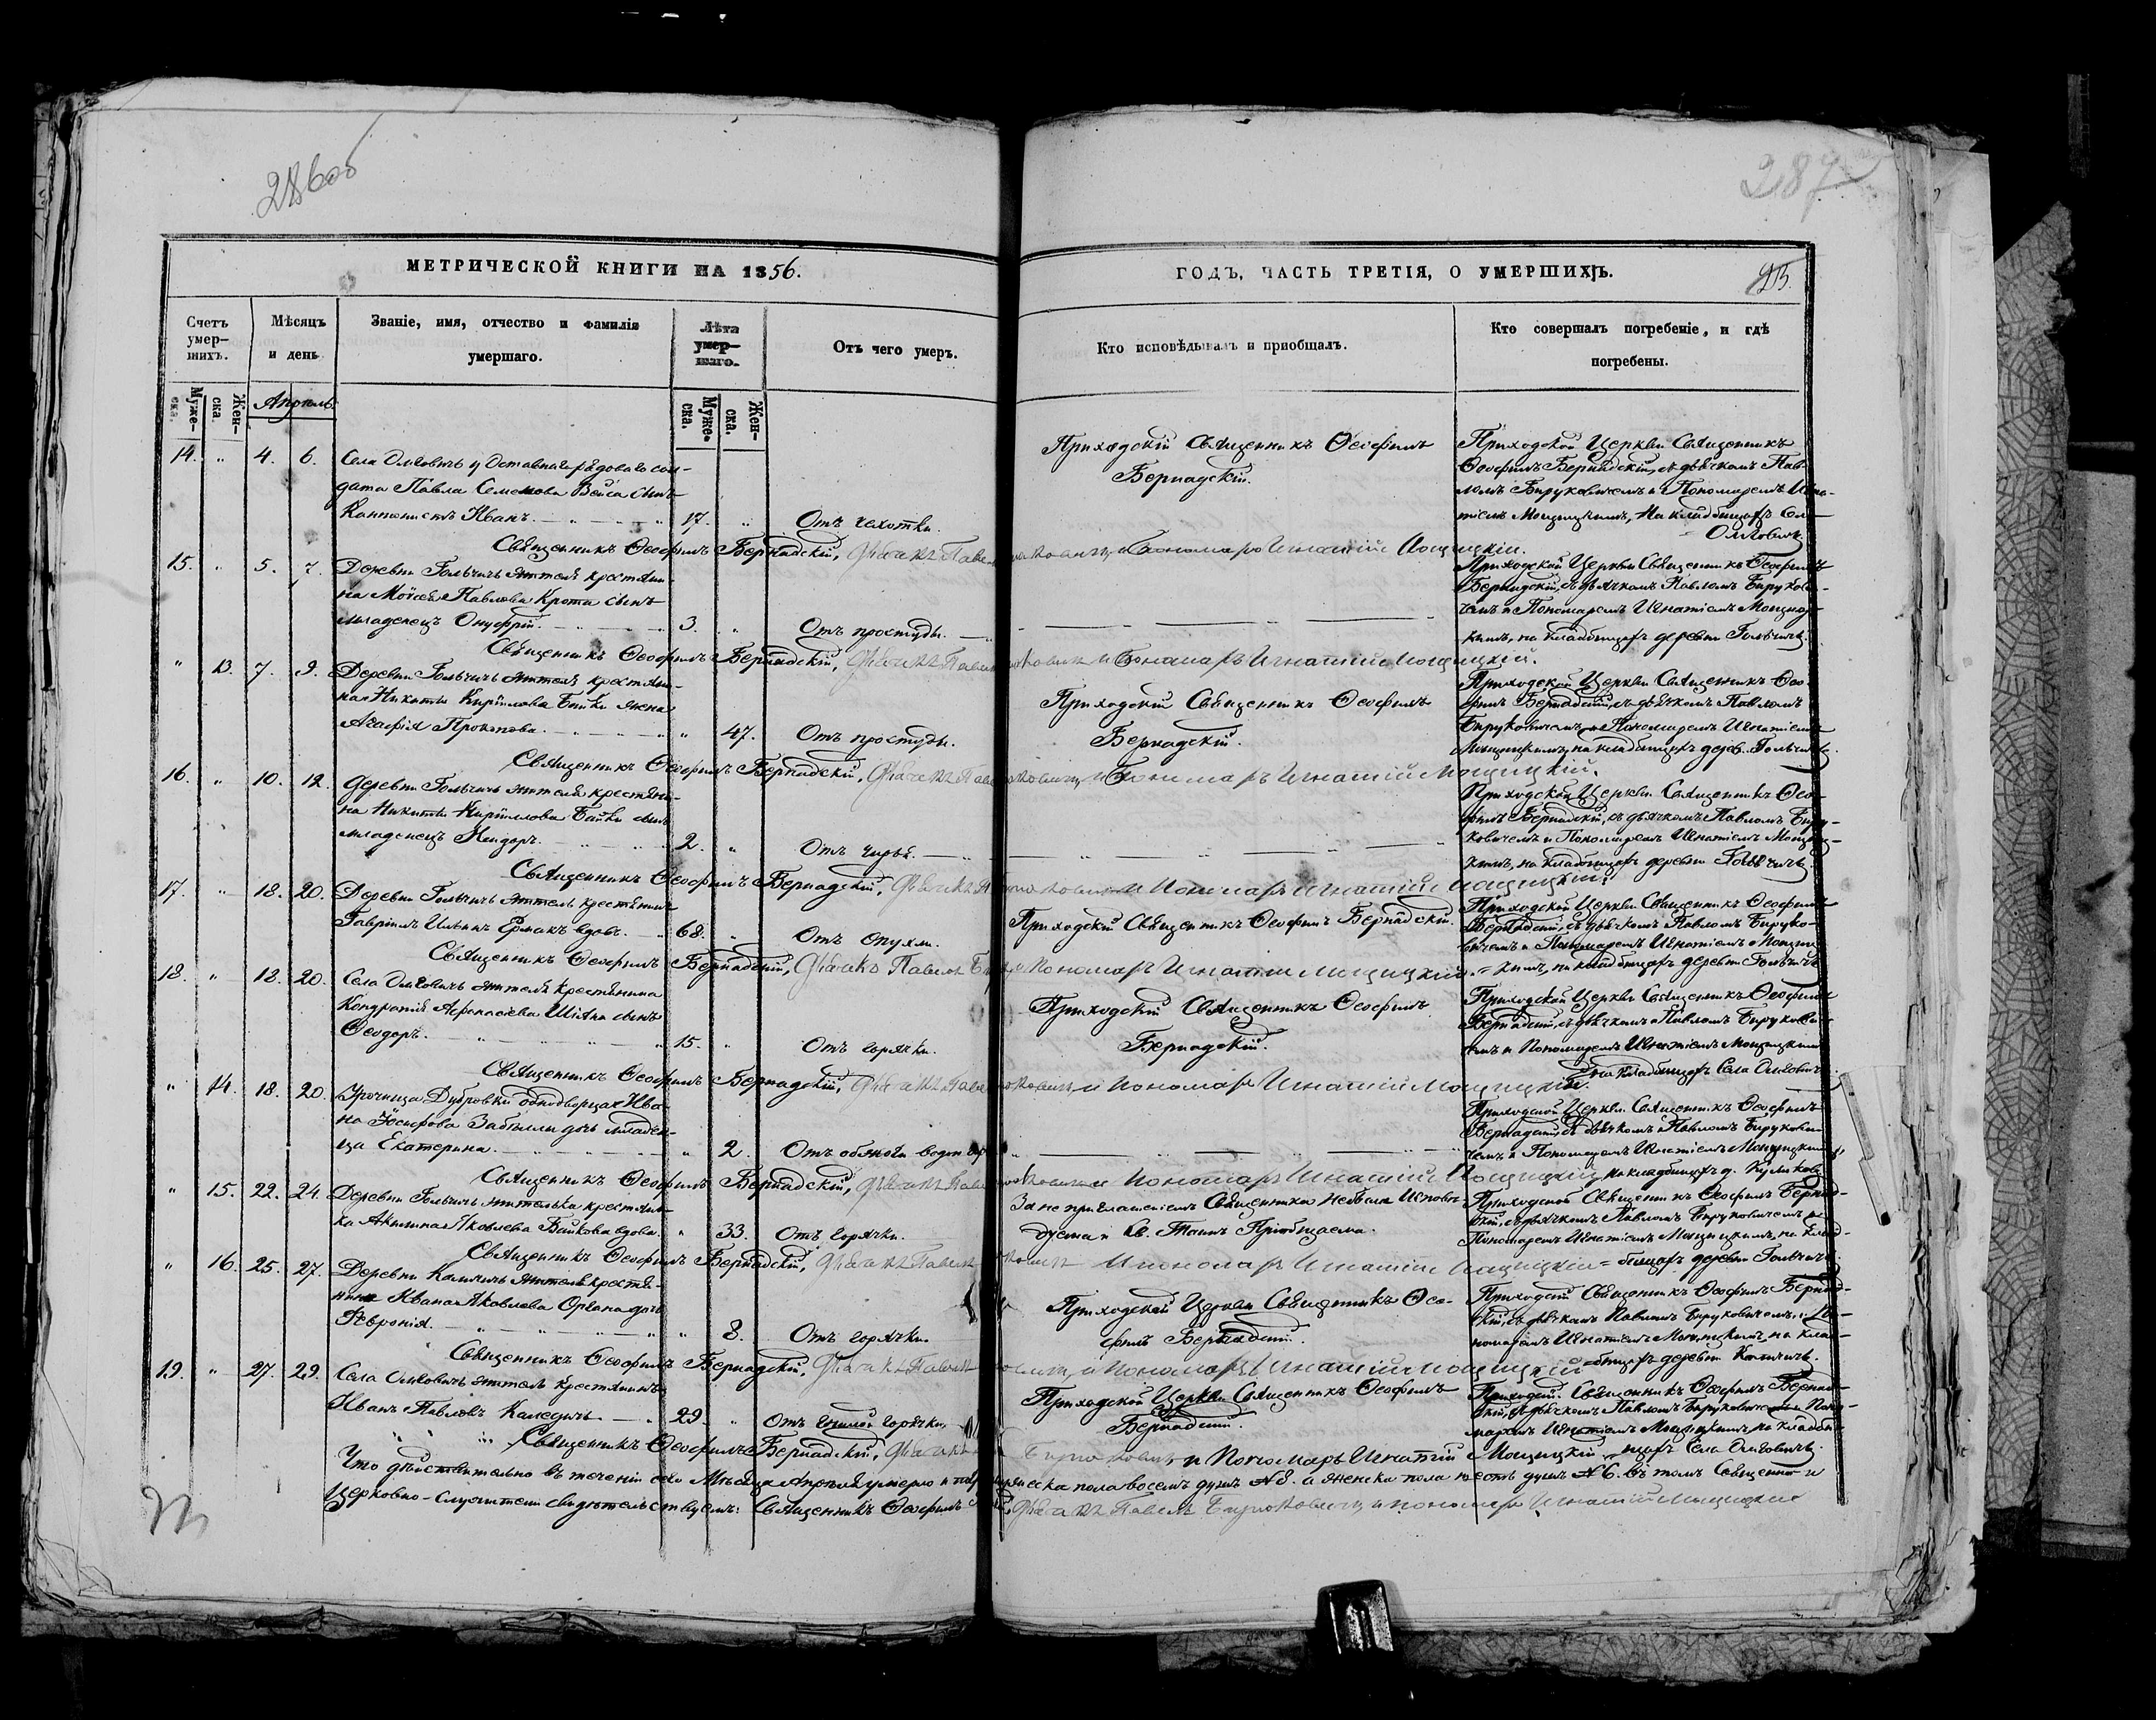 286об
287
МЕТРИЧЕСКОЙ КНИГИ НА 1856.
ГОДЪ, ЧАСТЬ ТРЕТІЯ, О УМЕРШИХЪ.
Счетъ умер-шихъ.
Мѣсяцъ и день
Званіе, имя, отчество и фамилія умершаго.
Лѣта умер-шаго.
Отъ чего умеръ.
Кто исповѣдывалъ и приобщалъ.
Кто совершалъ погребеніе, и гдѣ погребены.
Муже-ска.
Жен-ска.
Апрѣль
Муже-ска.
Жен-ска.
14. " 4. 6. Села
дата Павла Семенова сынъ
Кантонистъ Иванъ. 17. " Отъ чахотки.
Приходскій Священникъ Ѳеофилъ
Бернадскій.
Приходской Церкви Священникъ
Ѳеофилъ Бернадскій, съ дьячкомъ Пав-
ломъ Бируковичемъ и Пономаремъ Игна-
тіемъ Мощицкимъ, на кладбищѣ
Священникъ Ѳеофилъ Бернадскій, Дьячокъ Павелъ Бируковичъ и Пономарь Игнатій Мощицкій.
15. " 5. 7. Деревни Гольчичъ жителя крестьяни-
на Моисея Павлова Крота сынъ
младенецъ Онуфрій. 3. " Отъ простуды.
Приходской Церкви Священникъ Ѳеофилъ
Бернадскій, съ дьячкомъ Павломъ Бирукови-
чемъ и Пономаремъ Игнатіемъ Мощиц-
кимъ, на кладбищѣ деревни Гольчичъ.
Священникъ Ѳеофилъ Бернадскій, Дьячокъ Павелъ Бируковичъ и Пономарь Игнатій Мощицкій.
" 13. 7. 9. Деревни Гольчичъ жителя крестьяни-
на Никиты Кириллова Байки жена
Агафія Прокопова. " 47. Отъ простуды.
Приходскій Священникъ Ѳеофилъ
Бернадскій.
Приходской Церкви Священникъ Ѳео-
филъ Бернадскій, съ дьячкомъ Павломъ
Бируковичемъ и Пономаремъ Игнатіемъ
Мощицкимъ, на кладбищѣ дерев. Гольчичъ.
Священникъ Ѳеофилъ Бернадскій, Дьячокъ Павелъ Бируковичъ и Пономарь Игнатій Мощицкій.
16. " 10. 12. Деревни Гольчичъ жителя крестьяни-
на Никиты Кириллова Байки сынъ
младенецъ 2. " Отъ
Приходской Церкви Священникъ Ѳео-
филъ Бернадскій, съ дьячкомъ Павломъ Биру-
ковичемъ и Пономаремъ Игнатіемъ Мощиц-
кимъ, на кладбищѣ деревни Гольчичъ.
Священникъ Ѳеофилъ Бернадскій, Дьячокъ Павелъ Бируковичъ и Пономарь Игнатій Мощицкій.
17. " 18. 20. Деревни Гольчичъ житель крестьянинъ
Гавріилъ Ильинъ Ермакъ вдовъ. 68. " Отъ опухли.
Приходскій Священникъ Ѳеофилъ Бернадскій.
Приходской Церкви Священникъ Ѳеофилъ
Бернадскій, съ дьячкомъ Павломъ Бируко-
вичемъ и Пономаремъ Игнатіемъ Мощиц-
кимъ, на кладбищѣ деревни Гольчичъ
Священникъ Ѳеофилъ Бернадскій, Дьячокъ Павелъ и Пономарь Игнатій Мощицкій.
18. " 18. 20. Села жителя Крестьянина
Кондратія Афанасіева сынъ
Ѳеодоръ. 15. " Отъ горячки.
Приходскій Священникъ Ѳеофилъ
Бернадскій.
Приходской Церкви Священникъ Ѳеофилъ
Бернадскій, съ дьячкомъ Павломъ Бирукови-
чемъ и Пономаремъ Игнатіемъ Мощицкимъ
на кладбищѣ Села
Священникъ Ѳеофилъ Бернадскій, Дьячокъ Павелъ Бируковичъ и Пономарь Игнатій Мощицкій.
" 14. 18. 20. Урочища Дубровки однодворца Ива-
на Іосифова дочь младен-
ца Екатерина. " 2. Отъ
Приходской Церкви Священникъ Ѳеофилъ
Бернадскій, съ дьячкомъ Павломъ Бирукови-
чемъ и Пономаремъ Игнатіемъ Мощицкимъ,
на кладбищѣ д.
Священникъ Ѳеофилъ Бернадскій, Дьячокъ Павелъ Бируковичъ и Пономарь Игнатій Мощицкій
" 15. 22. 24. Деревни Гольчичъ жителька крестьян-
ка Акилина Яковлева Байкова вдова. " 33. Отъ горячки.
За не приглашеніемъ Священника небыла Исповѣ-
дуема и Св. Таинъ Пріобщаема.
Приходской Священникъ Ѳеофилъ Бернад-
скій, съ дьячкомъ Павломъ Бируковичемъ и
Пономаремъ Игнатіемъ Мощицкимъ, на клад-
бищѣ деревни Гольчичъ.
Священникъ Ѳеофилъ Бернадскій, Дьячокъ Павелъ Бируковичъ и Пономарь Игнатій Мощицкій
" 16. 25. 27. Деревни жителя крестья-
нина Ивана Яковлева Органа дочь
Февронія. " 8. Отъ горячки.
Приходской Церкви Священникъ Ѳео-
филъ Бернадскій.
Приходскій Священникъ Ѳеофилъ Бернад-
скій, съ дьячкомъ Павломъ Бируковичемъ, и По-
номаремъ Игнатіемъ Мощицкимъ, на клад-
бищѣ деревни
Священникъ Ѳеофилъ Бернадскій, Дьячокъ Павелъ Бируковичъ, и Пономарь Игнатій Мощицкій
19. " 27. 29. Села житель крестьянинъ
Иванъ Павловъ 29. " Отъ гнилой горячки.
Приходской Церкви Священникъ Ѳеофилъ
Бернадскій.
Приходскій Священникъ Ѳеофилъ Бернад-
скій, съ дьячкомъ Павломъ Бируковичемъ и Поно-
маремъ Игнатіемъ Мощицкимъ на кладби-
щѣ Села
Священникъ Ѳеофилъ Бернадскій, Дьячокъ Бируковичъ и Пономарь Игнатій Мощицкій
Что дѣйствительно въ теченіи сего Мѣсяца Апрѣля умерло и мужеска пола восемь душъ № 8. а женска пола шесть душъ № 6. въ томъ Священно и
Церковно-служители свидѣтельствуемъ: Священникъ Ѳеофилъ Дьячокъ Павелъ Бируковичъ, и Пономарь Игнатій Мощицкій